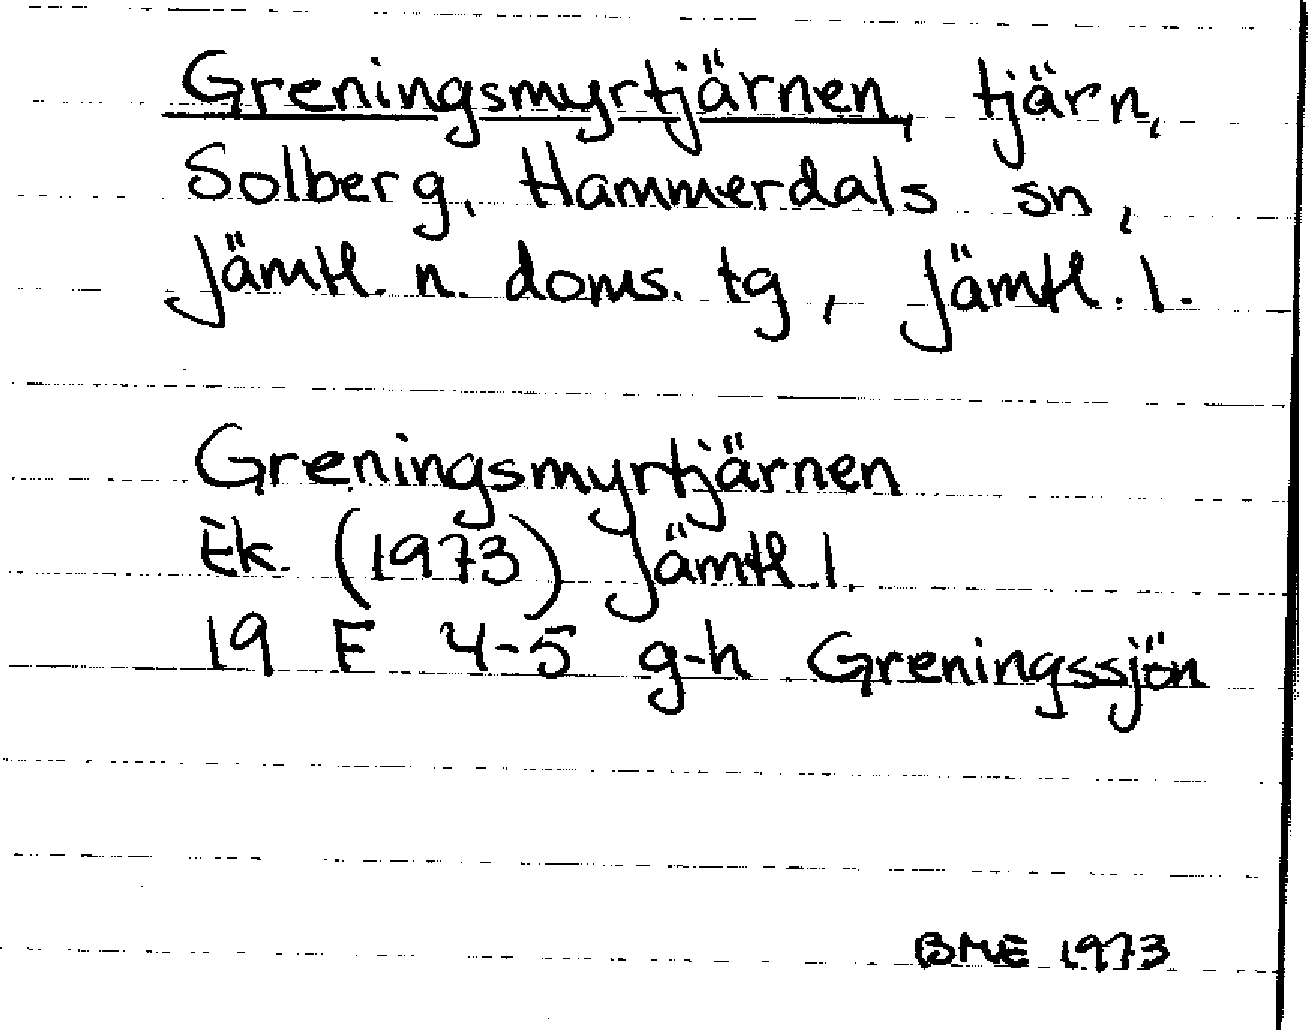 Greningsmyrtjärnen, tjärn,
Solberg, Hammerdals sn,
Jämtl. n. doms. tg, Jämtl. l.
Greningsmyrtjärnen
Ek. (1973) Jämtl. l.
19 F 4-5 g-h Greningssjön
BME 1973